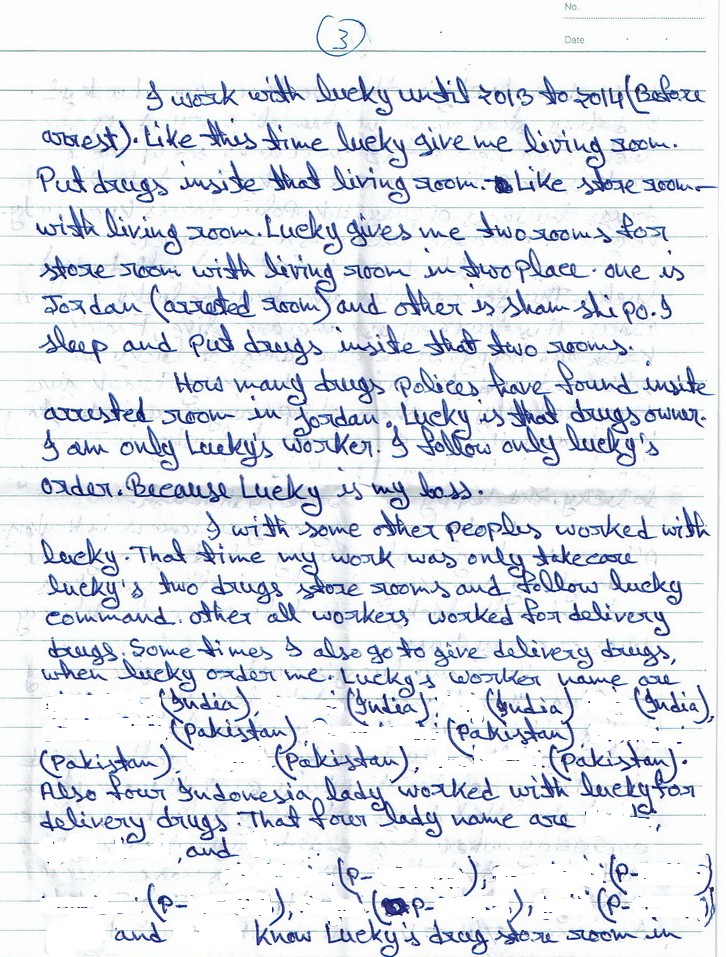 No.
3
Date
I work with lucky until 2013 to 2014 (Before
arrest). Like this time lucky give me living room.
Put drugs insite that living room. Like store room
with living room. Lucky gives me two rooms for
store room with living room in two place. one is
Jordan (arrested room) and other is sham shi po. I
sleep and put drugs insite that two rooms.
How many drugs polices have found insite
arrested room in Jordan. Lucky is that drugs owner.
I am only Lucky's worker. I follow only lucky's
order. Because Lucky is my boss.
I with some other peoples worked with
lucky. That time my work was only takecare
lucky's two drugs store rooms and follow lucky
command. other all workers worked for delivery
drugs. Some times I also go to give delivery drugs,
when lucky order me. Lucky's worker name are
(India), (India), (India) (India),
(Pakistan) (Pakistan)
(Pakistan), (Pakistan), (Pakistan).
Also four Indonesia lady worked with lucky for
delivery drugs. That four lady name are
, and
(P- ), (P- )
(P- ), (P- ), (P- )
and know Lucky's drug store room in